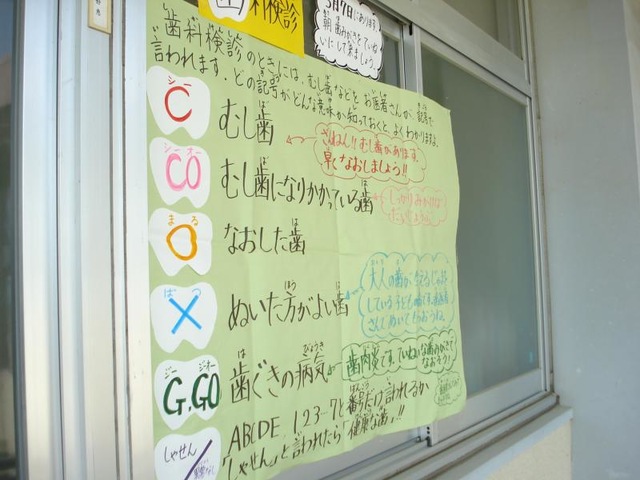 歯科検診
5月7日にあります。
朝 歯みがきをていね
いにして来ましょう。
歯科検診のときには、むし歯などをお医者さんが、記号で
言われます。どの記号がどんな意味か知っておくと、よくわかりますよ。
シー
C
むし歯
ざんねん!!むし歯があります。
早くなおしましょう!!
シーオー
CO
むし歯になりかかっている歯
しっかりみがけば
まる
O
なおした歯
ばつ
×
ぬいた方がよい歯
大人の歯が
している子どもの歯です。
さんでぬいてもらおうね。
ジー ジオー
G.GO
歯ぐきの病気
歯肉炎です。ていねいな歯みがきで
なおそう!
しゃせん
ABCDE 1,2,3〜7と番号だけ言われるか
「しゃせん」と言われたら「健康な歯」!!